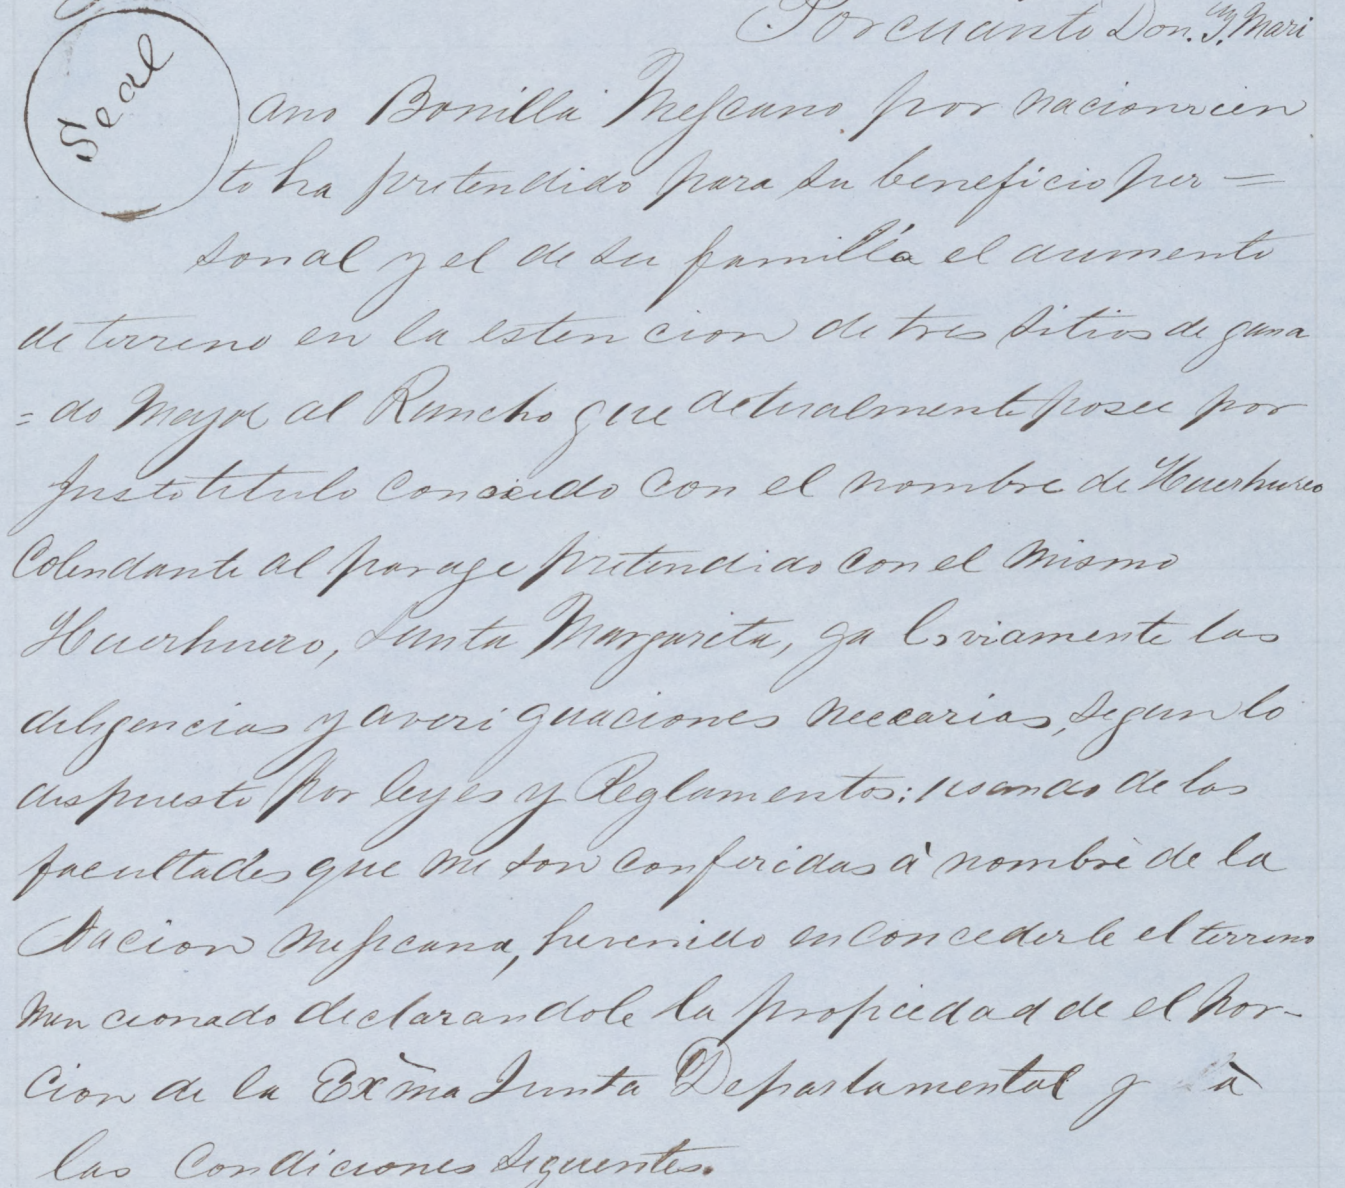 Porcuanto Don. J. Mari
Seal
ano Bonilla Mejicano por nacimien
to ha pretendido para su beneficio per =
sonal y el de su familia el aumento
de terreno en la estencion de tres sitios de gana
= do Mayor al Rancho que actualmente posee por
Justo titulo concedido con el nombre de Huerhuero
Colendante al parage pretendido con el mismo
Huerhuero, Santa Margarita, ya
diligencias y averiguaciones neccarias, segun lo
dispuesto por leyes y Reglamentos: usando de las
facultades que me son conferidas à nombre de la
Nacion Mejicana, he venido en concederle el terreno
mencionado declarandole la propiedad de el por-
cion de la Exma Junta Departamental y à
las Condiciones siguientes.